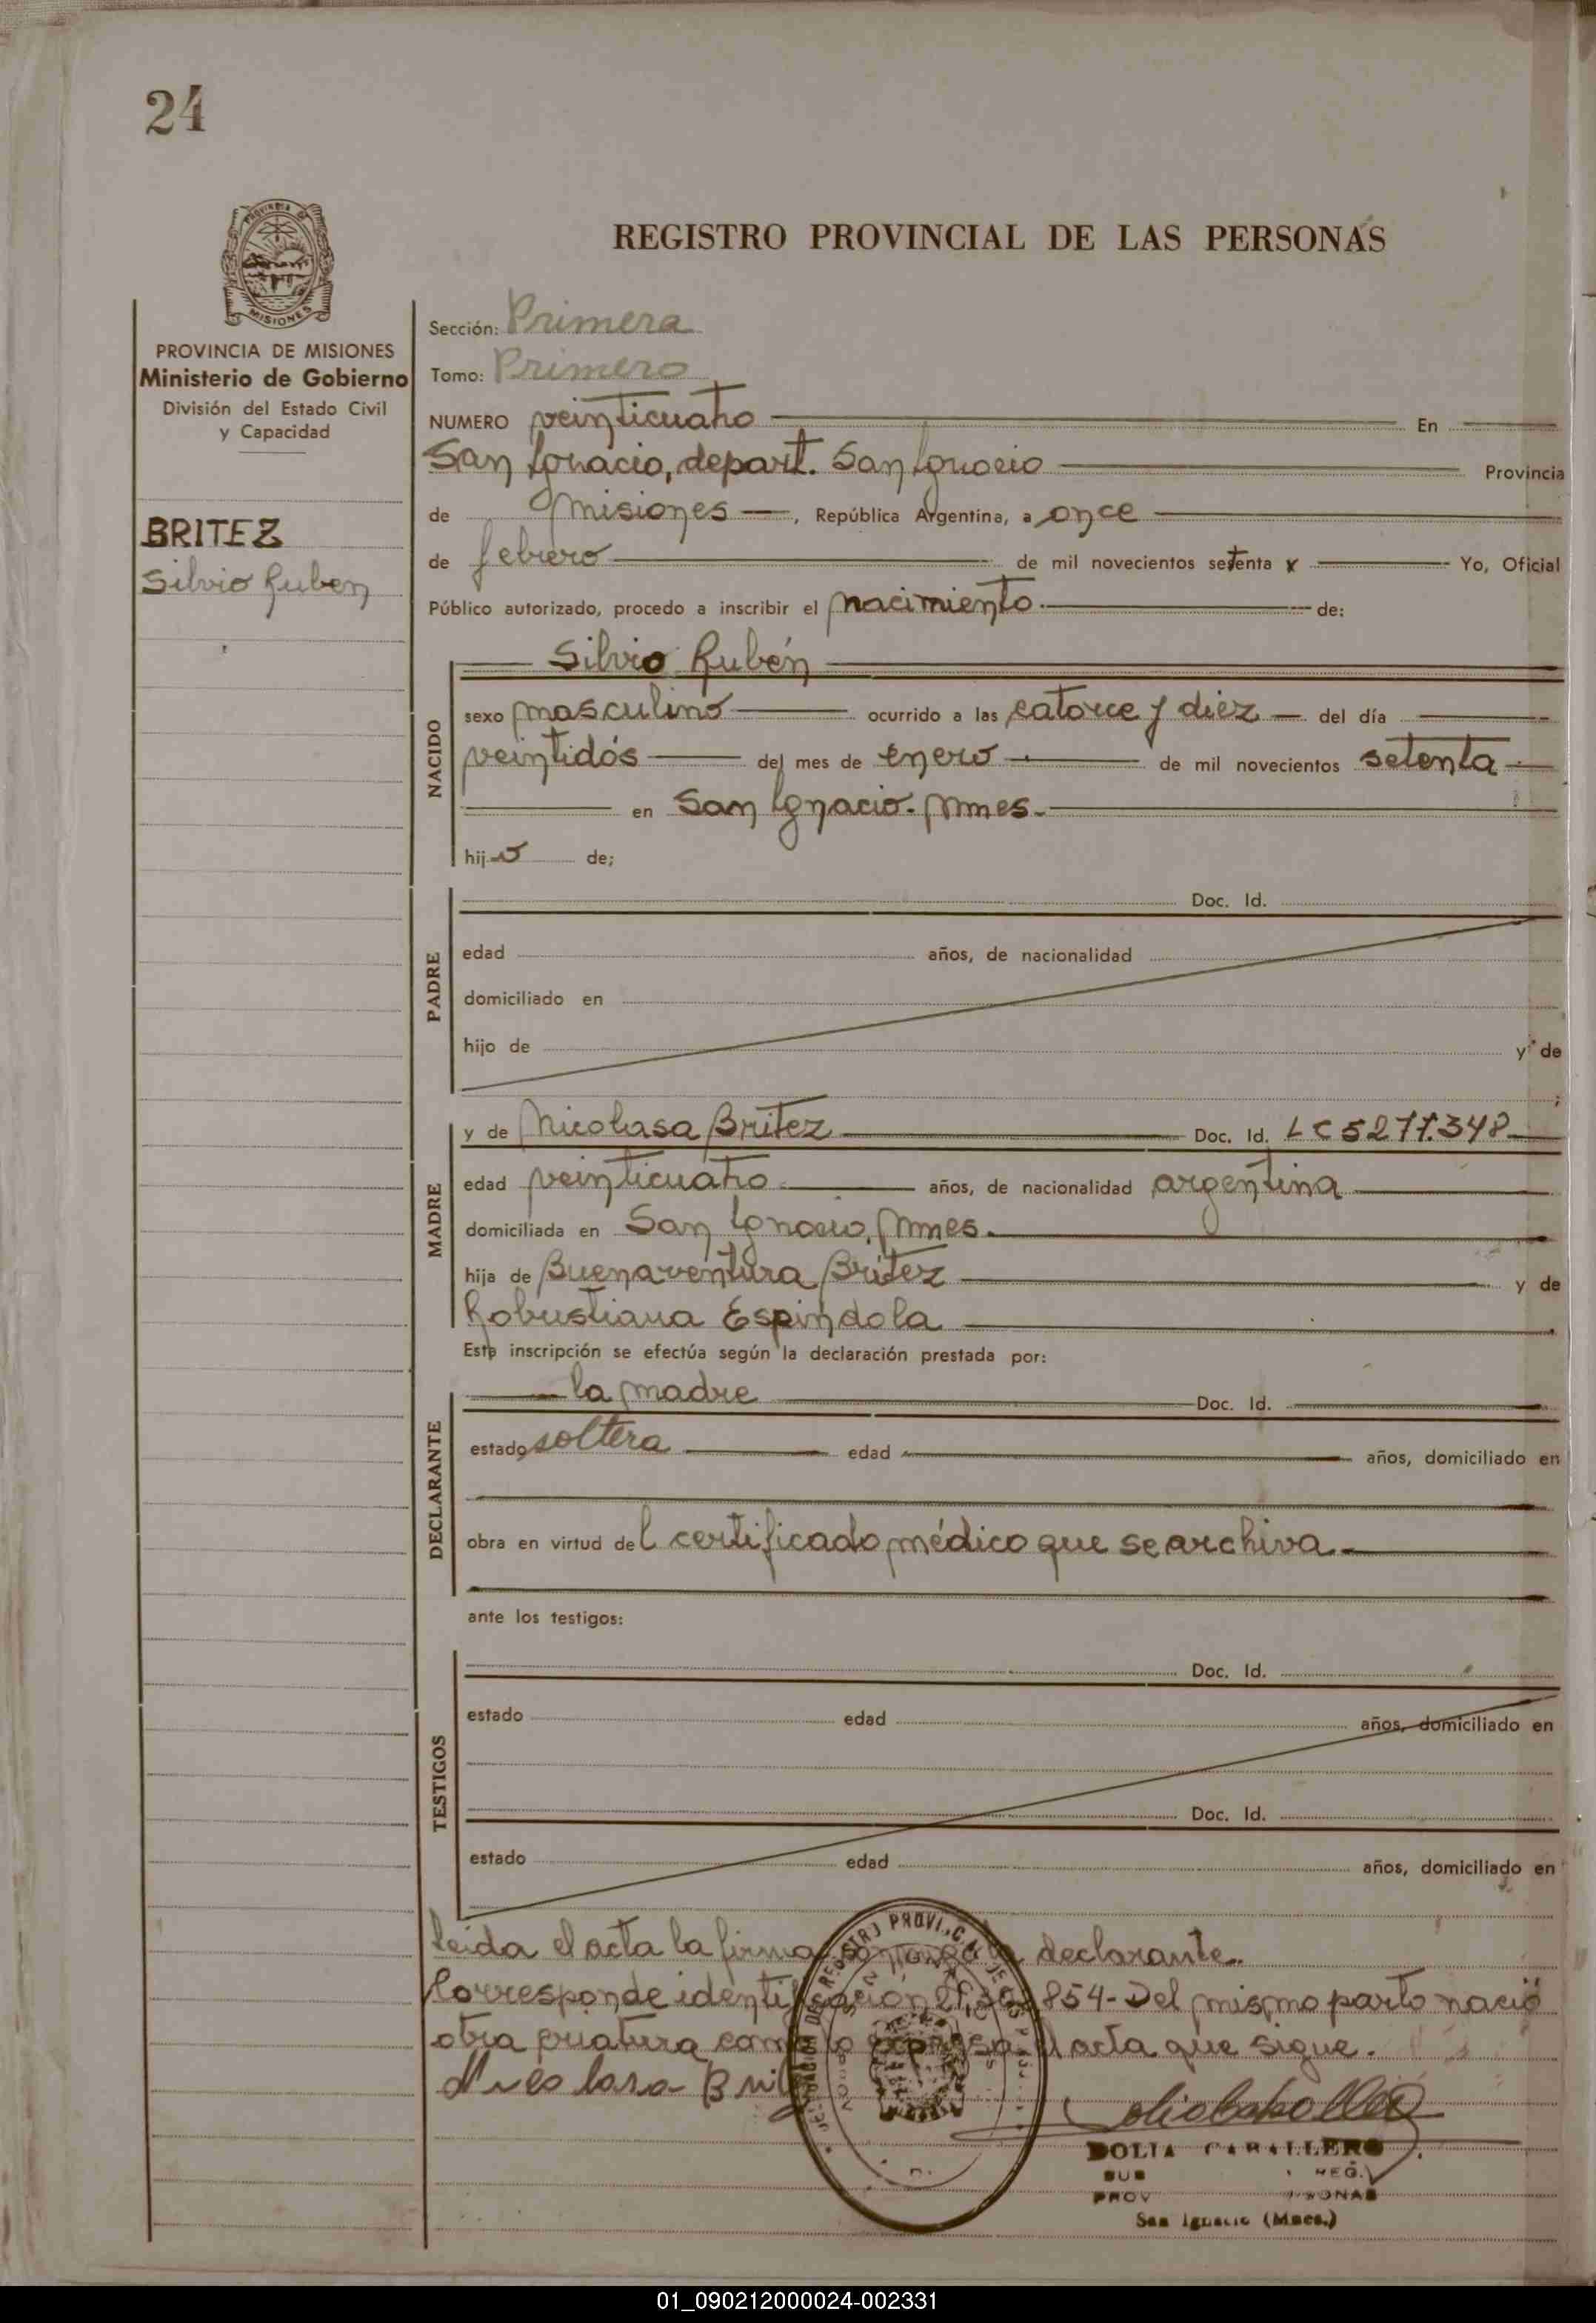 24
PROVINCIA DE
MISIONES
REGISTRO PROVINCIAL DE LAS PERSONAS
PROVINCIA DE MISIONES
Ministerio de Gobierno
División del Estado Civil
y Capacidad
BRITEZ
Silvio Ruben
Sección: Primera
Tomo: Primero
NUMERO veinticuatro En
San Ignacio, depart. San Ignacio Provincia
de misiones, República Argentina, a once
de febrero de mil novecientos setenta x Yo, Oficial
Público autorizado, procedo a inscribir el nacimiento de:
NACIDO
Silvio Rubén
sexo masculino ocurrido a las catorce y diez del día
veintidós del mes de enero de mil novecientos setenta
en San Ignacio. Mnes.
hijo de;
PADRE
Doc. Id.
edad años, de nacionalidad
domiciliado en
hijo de y de
;
MADRE
y de Nicolasa Britez Doc. Id. LC 5277.348
edad veinticuatro años, de nacionalidad argentina
domiciliada en San Ignacio, Mnes.
hija de Buenaventura Britez y de
Robustiana Espíndola
Esta inscripción se efectúa según la declaración prestada por:
DECLARANTE
la madre Doc. Id.
estado soltera edad años, domiciliado en
obra en virtud del certificado médico que se archiva
ante los testigos:
TESTIGOS
Doc. Id.
estado edad años, domiciliado en
Doc. Id.
estado edad años, domiciliado en
Leida el acta la firma declarante.
Corresponde identificación 854- Del mismo parto nació
otra criatura como lo expresa el acta que sigue.
Nicolasa Brit
DOLIA CABALLERO
SUB REG.
PROV PERSONAS
San Ignacio (Mnes.)
01_090212000024-002331